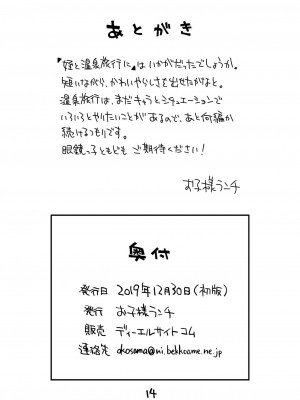 あとがき
『姪と温泉旅行に』はいかがだったでしょうか。
短いながら、かわいやらしさを出せたかなと。
温泉旅行は、まだキャラとシチュエーションで
いろいろとやりたいことがあるので、あと何編か
続けるつもりです。
眼鏡っ子ともども ご期待ください!
お子様ランチ
奥付
発行日 2019年12月30日(初版)
発行 お子様ランチ
販売 ディーエルサイトコム
連絡先 okosama@ni.bekkoame.ne.jp
14